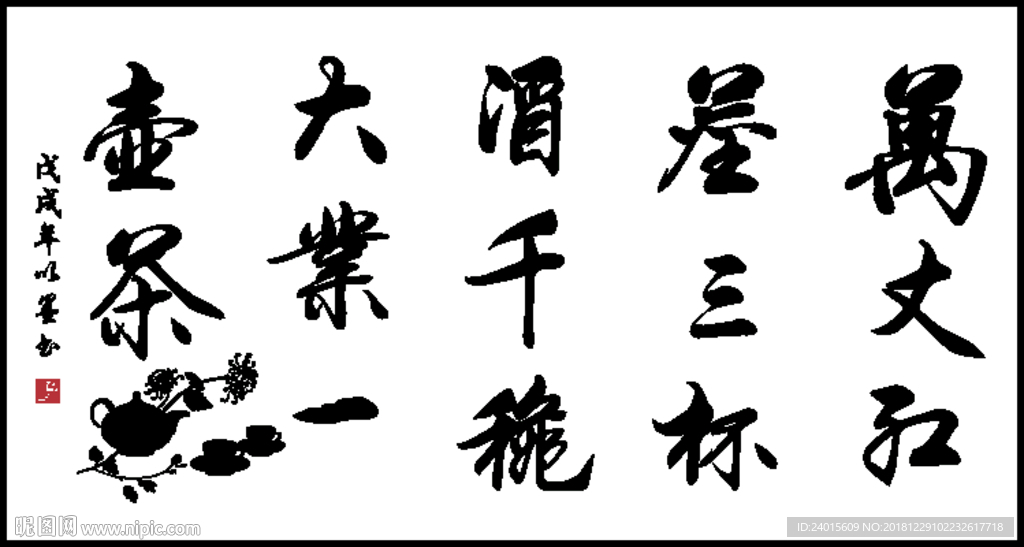 萬丈红
塵三杯
酒千穐
大業一
壺茶
戊戌年以墨书
昵图网 www.nipic.com
ID:24015609 NO:20181229102232617718